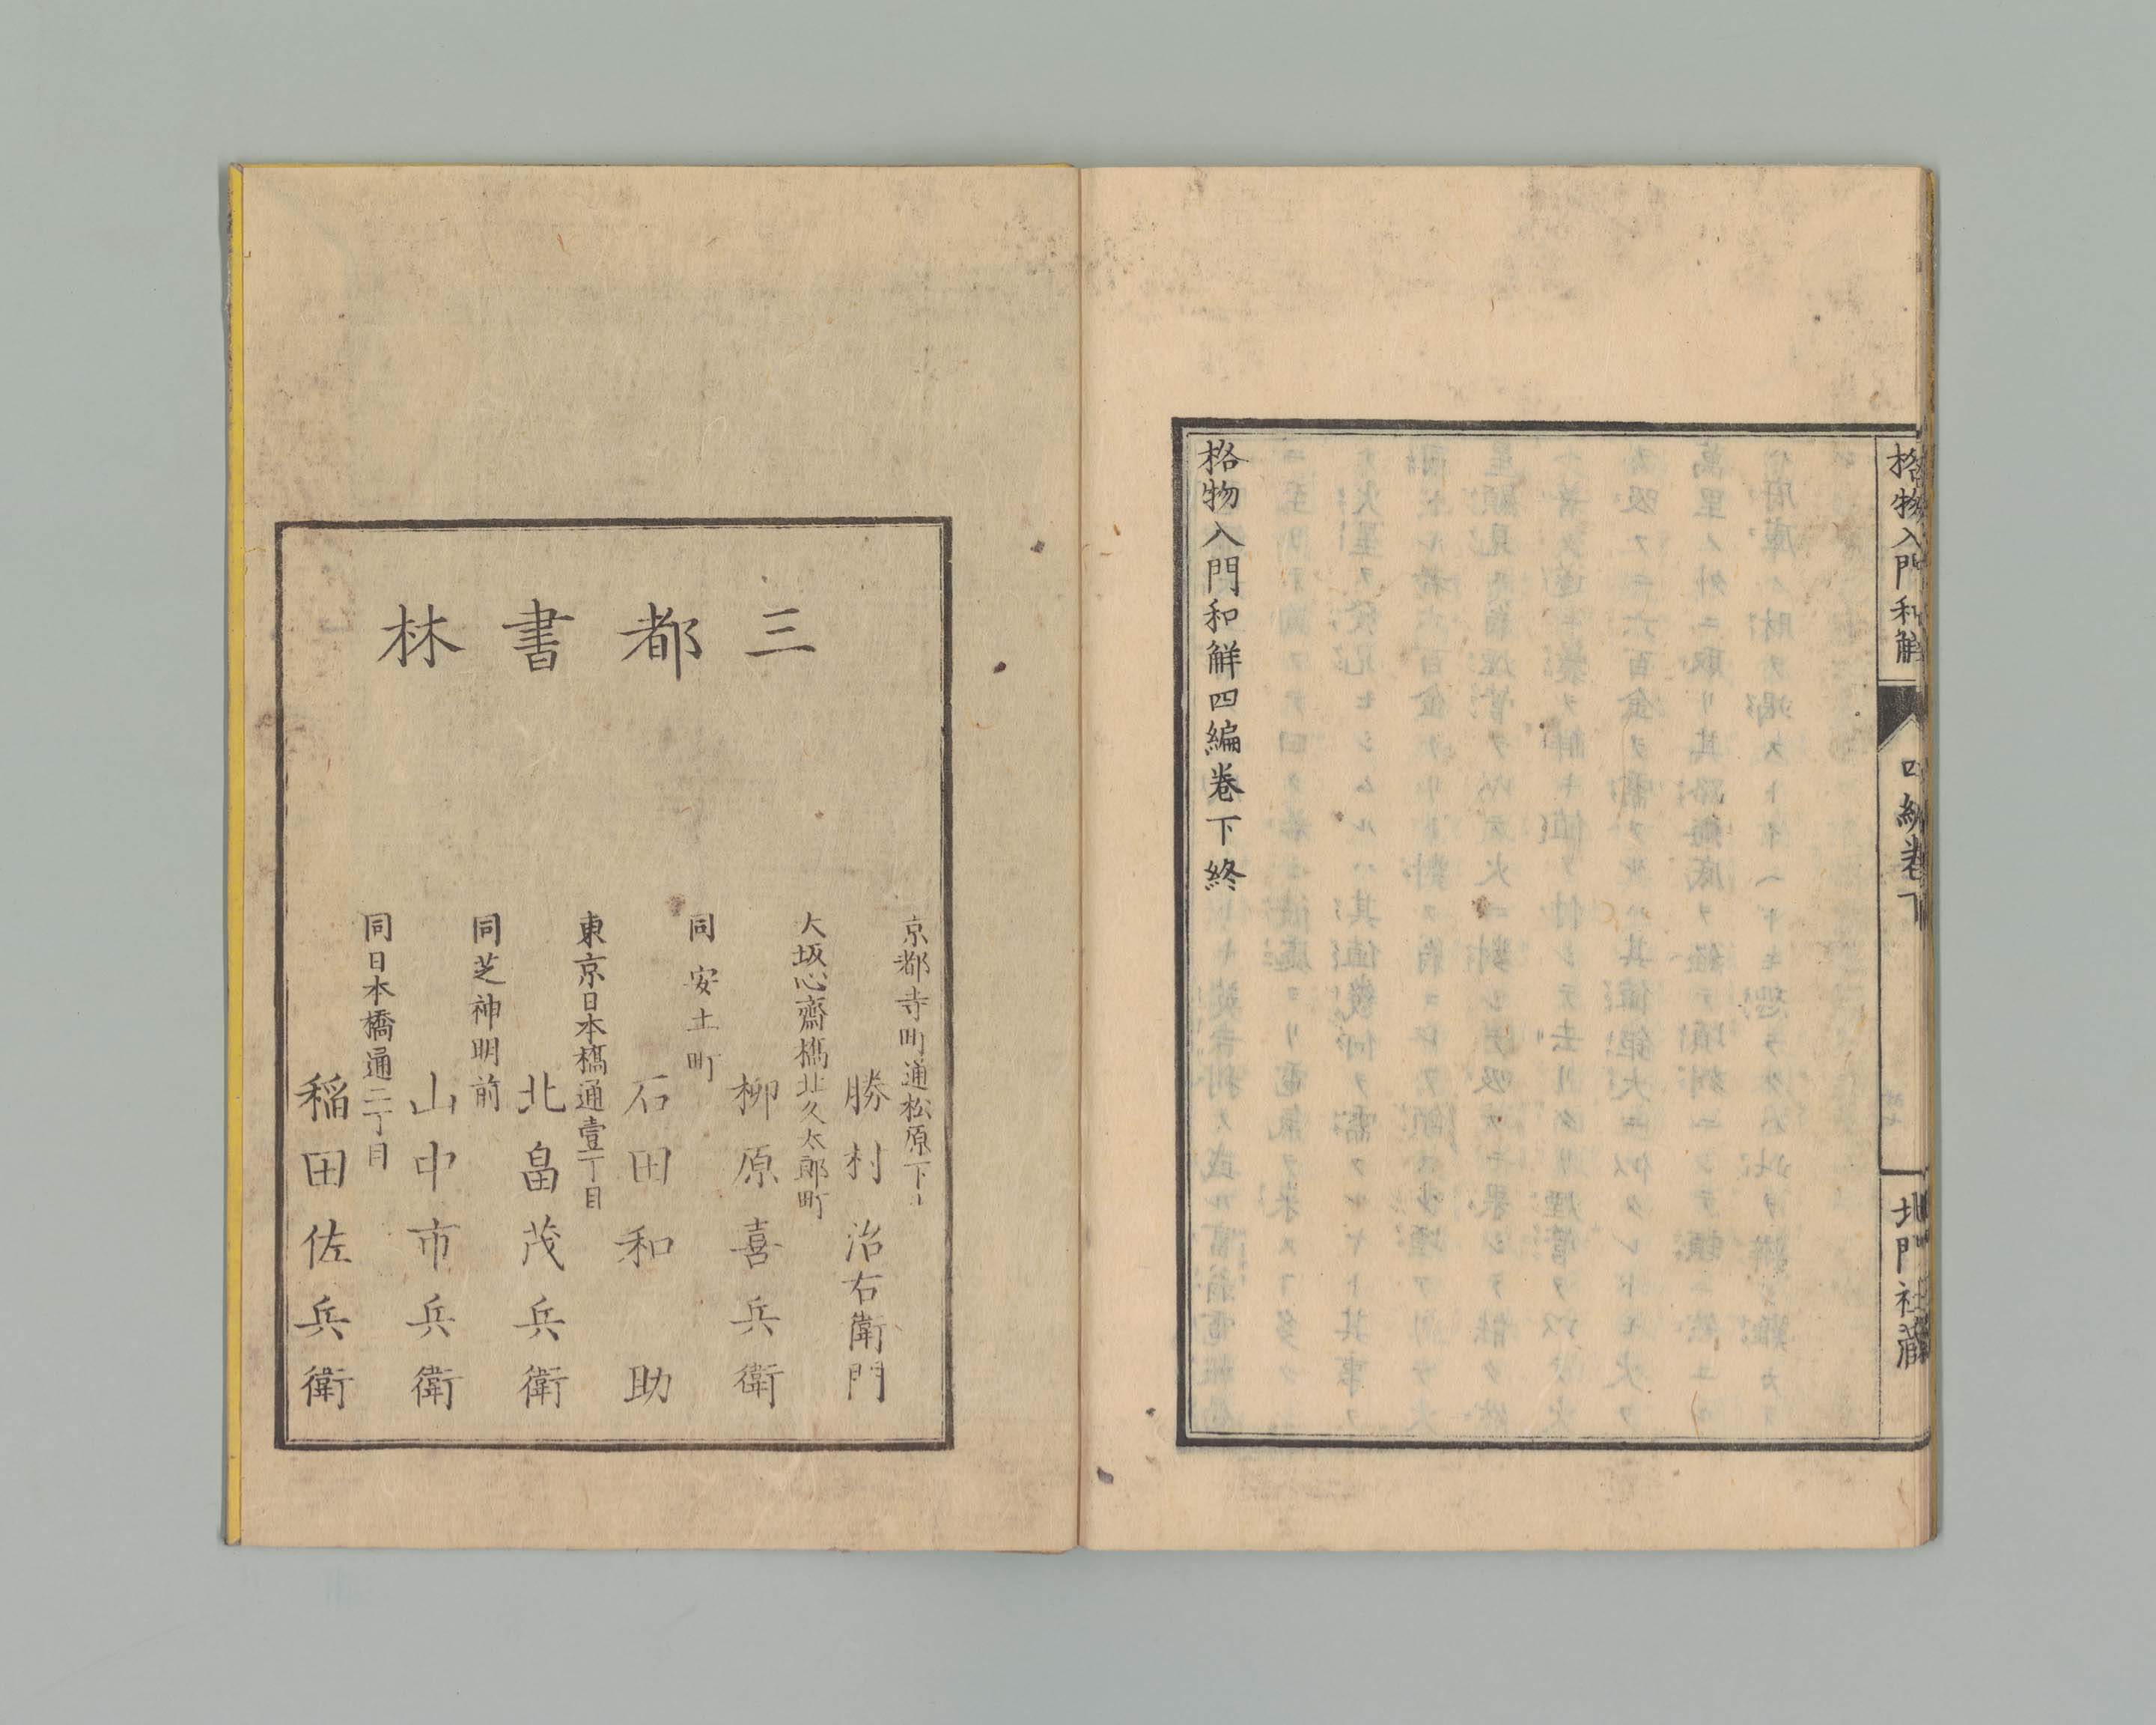 格物入門和解
四編卷下
北門社藏
格物入門和解四編卷下終
三都書林
京都寺町通松原下
勝村治右衛門
大坂心齋橋北久太郎町
柳原喜兵衛
同安土町
石田和助
東京日本橋通壹丁目
北畠茂兵衛
同芝神明前
山中市兵衛
同日本橋通二丁目
稲田佐兵衛